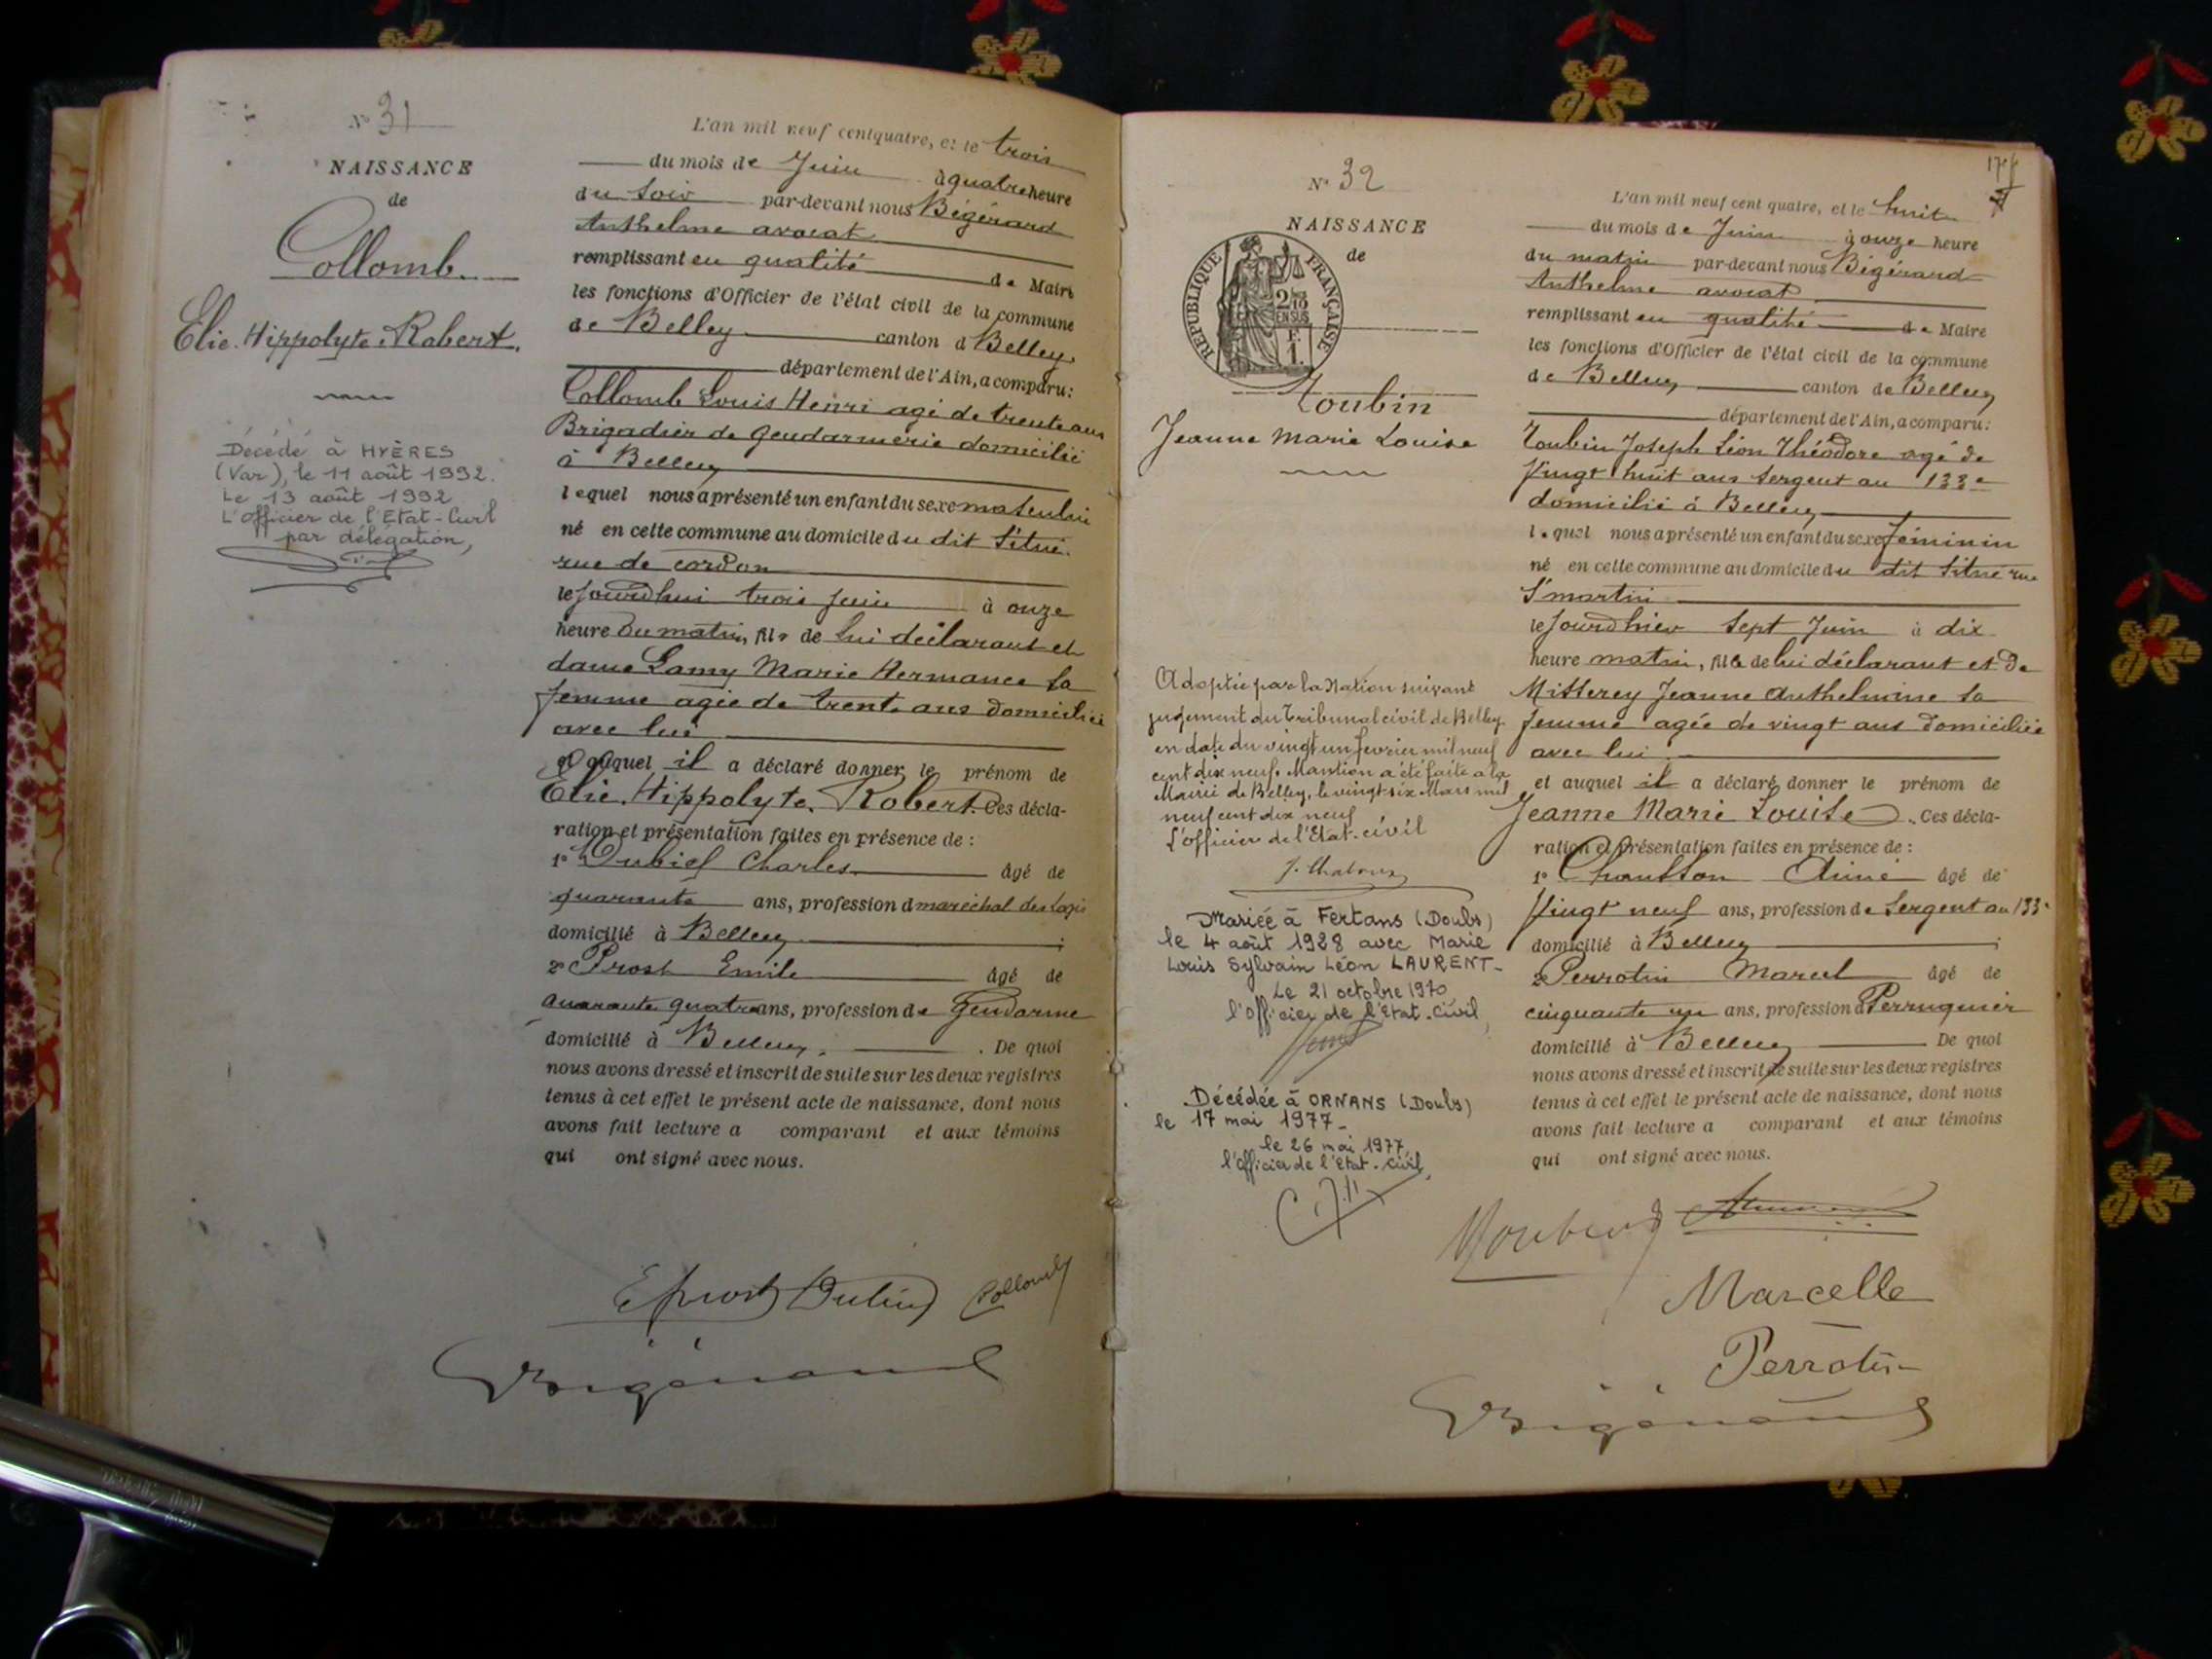 N° 31
NAISSANCE
de
Collomb
Elie. Hippolyte. Robert.
Décédé à HYÈRES
(Var), le 11 août 1992.
Le 13 août 1992
L'officier de l'Etat-Civil
par délégation,
L'an mil neuf cent quatre, et le trois
du mois de Juin à quatre heure
du soir par-devant nous Bigérard
Anthelme avocat
remplissant en qualité de Maire
les fonctions d'Officier de l'état civil de la commune
de Belley canton d Belley
département de l'Ain, a comparu:
Collomb Louis Henri agé de trente ans
Brigadier de Gendarmerie domicilié
à Belley
lequel nous a présenté un enfant du sexe masculin
né en cette commune au domicile du dit situé
rue de cordon
le jourdhui trois juin à onze
heure du matin, fils de lui déclarant et
dame Lamy Marie Hermance sa
femme agée de trente ans domiciliée
avec lui
et auquel il a déclaré donner le prénom de
Elie. Hippolyte. Robert. Ces décla-
ration et présentation faites en présence de :
1° Dubief Charles âgé de
quarante ans, profession d maréchal des logis
domicilié à Belley ;
2° Prost Emile âgé de
quarante quatre ans, profession de Gendarme
domicilié à Belley . De quoi
nous avons dressé et inscrit de suite sur les deux registres
tenus à cet effet le présent acte de naissance, dont nous
avons fait lecture a comparant et aux témoins
qui ont signé avec nous.
E Prost Dubief Collomb
Bigérard
N° 32
NAISSANCE
de
REPUBLIQUE FRANÇAISE
2/10
EN SUS
F.
1.
Toubin
Jeanne Marie Louise
Adoptée par la Nation suivant
jugement du Tribunal civil de Belley
en date du vingt un fevrier mil neuf
cent dix neuf. Mention a été faite a la
Mairie de Belley, le vingt six Mars mil
neuf cent dix neuf
L'officier de l'Etat-civil
Mariée à Fertans (Doubs)
le 4 août 1928 avec Marie
Louis Sylvain Léon LAURENT-
Le 21 octobre 1970
l'officier de l'Etat-civil,
Décédée à ORNANS (Doubs)
le 17 mai 1977-
le 26 mai 1977,
l'officier de l'Etat-civil,
L'an mil neuf cent quatre, et le huit
du mois de Juin à onze heure
du matin par-devant nous Bigérard
Anthelme avocat
remplissant en qualité de Maire
les fonctions d'Officier de l'état civil de la commune
de Belley canton de Belley
département de l'Ain, a comparu:
Toubin Joseph Léon Théodore agé de
Vingt huit ans sergent au 133e
domicilié à Belley
lequel nous a présenté un enfant du sexe féminin
né en cette commune au domicile du dit situé rue
St martin
le jourdhier sept Juin à dix
heure matin, fille de lui déclarant et de
Mitterey Jeanne Anthelmine sa
femme agée de vingt ans domiciliée
avec lui
et auquel il a déclaré donner le prénom de
Jeanne Marie Louise . Ces décla-
ration et présentation faites en présence de :
1° Chausson Aimé âgé de
Vingt neuf ans, profession de Sergent au 133e
domicilié à Belley ;
2° Perrotin Marcel âgé de
cinquante un ans, profession d Perruquier
domicilié à Belley De quoi
nous avons dressé et inscrit de suite sur les deux registres
tenus à cet effet le présent acte de naissance, dont nous
avons fait lecture a comparant et aux témoins
qui ont signé avec nous.
Toubin
Marcelle
Perrotin
Bigérard